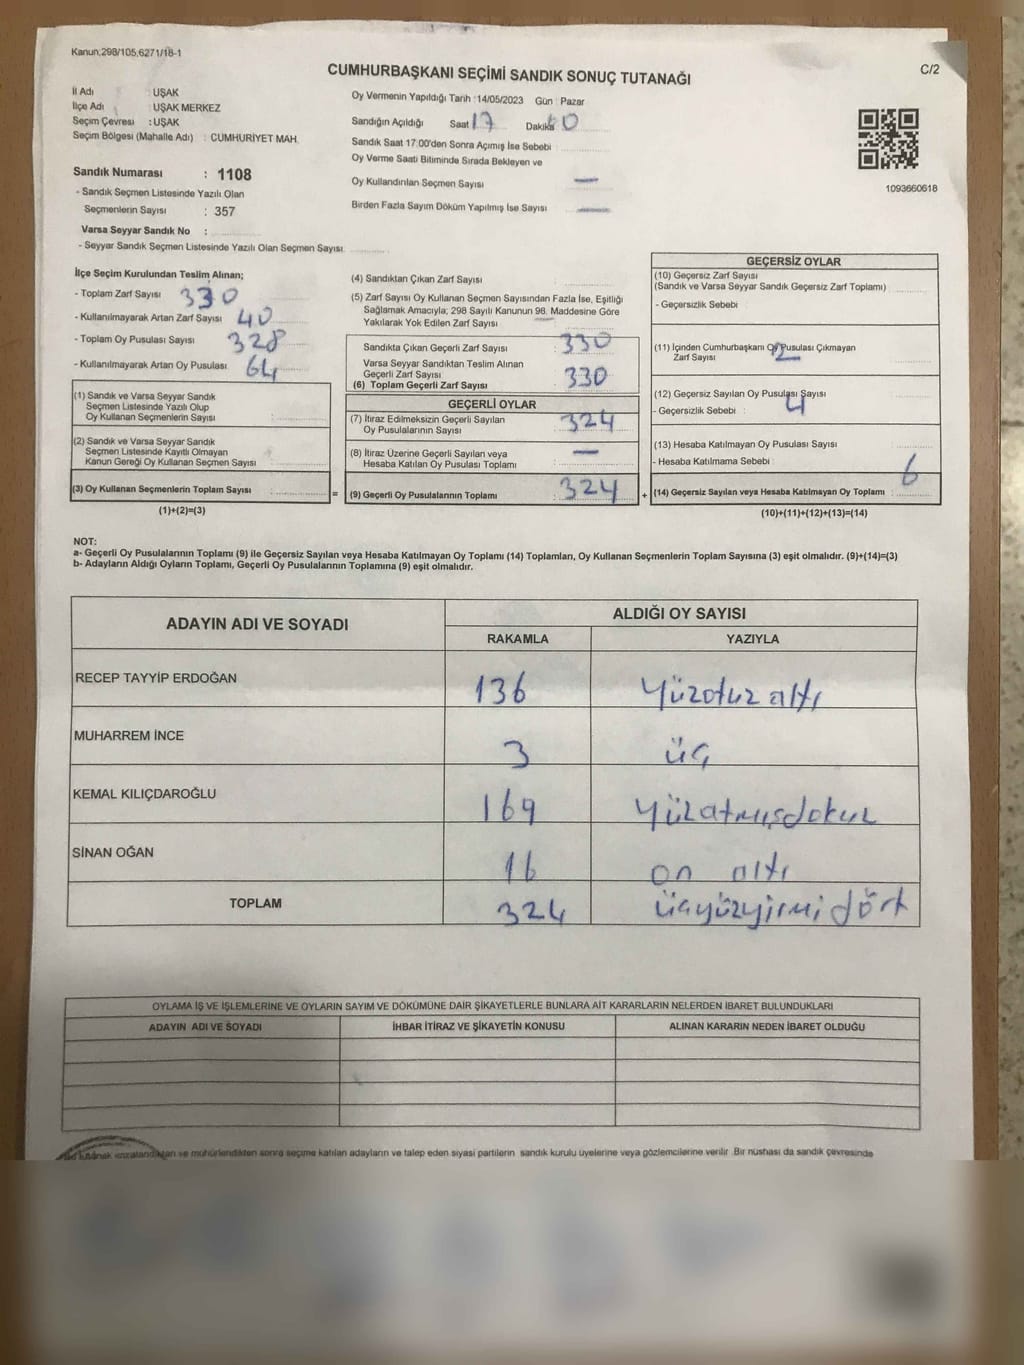 Kanun;298/105,6271/18-1
CUMHURBAŞKANI SEÇİMİ SANDIK SONUÇ TUTANAĞI
C/2
İl Adı : UŞAK
İlçe Adı : UŞAK MERKEZ
Seçim Çevresi : UŞAK
Seçim Bölgesi (Mahalle Adı) : CUMHURİYET MAH.
Sandık Numarası : 1108
- Sandık Seçmen Listesinde Yazılı Olan
Seçmenlerin Sayısı : 357
Varsa Seyyar Sandık No :
- Seyyar Sandık Seçmen Listesinde Yazılı Olan Seçmen Sayısı:
Oy Vermenin Yapıldığı Tarih : 14/05/2023 Gün : Pazar
Sandığın Açıldığı Saat 17 Dakika
Sandık Saat 17:00'den Sonra Açımış İse Sebebi :
Oy Verme Saati Bitiminde Sırada Bekleyen ve
Oy Kullandırılan Seçmen Sayısı —
Birden Fazla Sayım Döküm Yapılmış İse Sayısı —
1093660618
İlçe Seçim Kurulundan Teslim Alınan;
- Toplam Zarf Sayısı : 330
- Kullanılmayarak Artan Zarf Sayısı : 40
- Toplam Oy Pusulası Sayısı : 328
- Kullanılmayarak Artan Oy Pusulası : 64
(1) Sandık ve Varsa Seyyar Sandık
Seçmen Listesinde Yazılı Olup
Oy Kullanan Seçmenlerin Sayısı :
(2) Sandık ve Varsa Seyyar Sandık
Seçmen Listesinde Kayıtlı Olmayan
Kanun Gereği Oy Kullanan Seçmen Sayısı :
(3) Oy Kullanan Seçmenlerin Toplam Sayısı :
(1)+(2)=(3)
=
(4) Sandıktan Çıkan Zarf Sayısı
(5) Zarf Sayısı Oy Kullanan Seçmen Sayısından Fazla İse, Eşitliği
Sağlamak Amacıyla; 298 Sayılı Kanunun 98. Maddesine Göre
Yakılarak Yok Edilen Zarf Sayısı —
Sandıkta Çıkan Geçerli Zarf Sayısı : 330
Varsa Seyyar Sandıktan Teslim Alınan
Geçerli Zarf Sayısı
(6) Toplam Geçerli Zarf Sayısı : 330
GEÇERLİ OYLAR
(7) İtiraz Edilmeksizin Geçerli Sayılan
Oy Pusulalarının Sayısı : 324
(8) İtiraz Üzerine Geçerli Sayılan veya
Hesaba Katılan Oy Pusulası Toplamı : —
(9) Geçerli Oy Pusulalarının Toplamı : 324
+
GEÇERSİZ OYLAR
(10) Geçersiz Zarf Sayısı
(Sandık ve Varsa Seyyar Sandık Geçersiz Zarf Toplamı) :
- Geçersizlik Sebebi :
(11) İçinden Cumhurbaşkanı Oy Pusulası Çıkmayan
Zarf Sayısı : 2
(12) Geçersiz Sayılan Oy Pusulası Sayısı 4
- Geçersizlik Sebebi :
(13) Hesaba Katılmayan Oy Pusulası Sayısı :
- Hesaba Katılmama Sebebi :
(14) Geçersiz Sayılan veya Hesaba Katılmayan Oy Toplamı : 6
(10)+(11)+(12)+(13)=(14)
NOT:
a- Geçerli Oy Pusulalarının Toplamı (9) ile Geçersiz Sayılan veya Hesaba Katılmayan Oy Toplamı (14) Toplamları, Oy Kullanan Seçmenlerin Toplam Sayısına (3) eşit olmalıdır. (9)+(14)=(3)
b- Adayların Aldığı Oyların Toplamı, Geçerli Oy Pusulalarının Toplamına (9) eşit olmalıdır.
ADAYIN ADI VE SOYADI ALDIĞI OY SAYISI
RAKAMLA YAZIYLA
RECEP TAYYİP ERDOĞAN 136 Yüzotuz altı
MUHARREM İNCE 3 üç
KEMAL KILIÇDAROĞLU 169 yüzatmışdokuz
SİNAN OĞAN 16 on altı
TOPLAM 324 üçyüzyirmi dört
OYLAMA İŞ VE İŞLEMLERİNE VE OYLARIN SAYIM VE DÖKÜMÜNE DAİR ŞİKAYETLERLE BUNLARA AİT KARARLARIN NELERDEN İBARET BULUNDUKLARI
ADAYIN ADI VE SOYADI İHBAR İTİRAZ VE ŞİKAYETİN KONUSU ALINAN KARARIN NEDEN İBARET OLDUĞU
tutanak imzalandıktan ve mühürlendikten sonra seçime katılan adayların ve talep eden siyasi partilerin sandık kurulu üyelerine veya gözlemcilerine verilir. Bir nüshası da sandık çevresinde